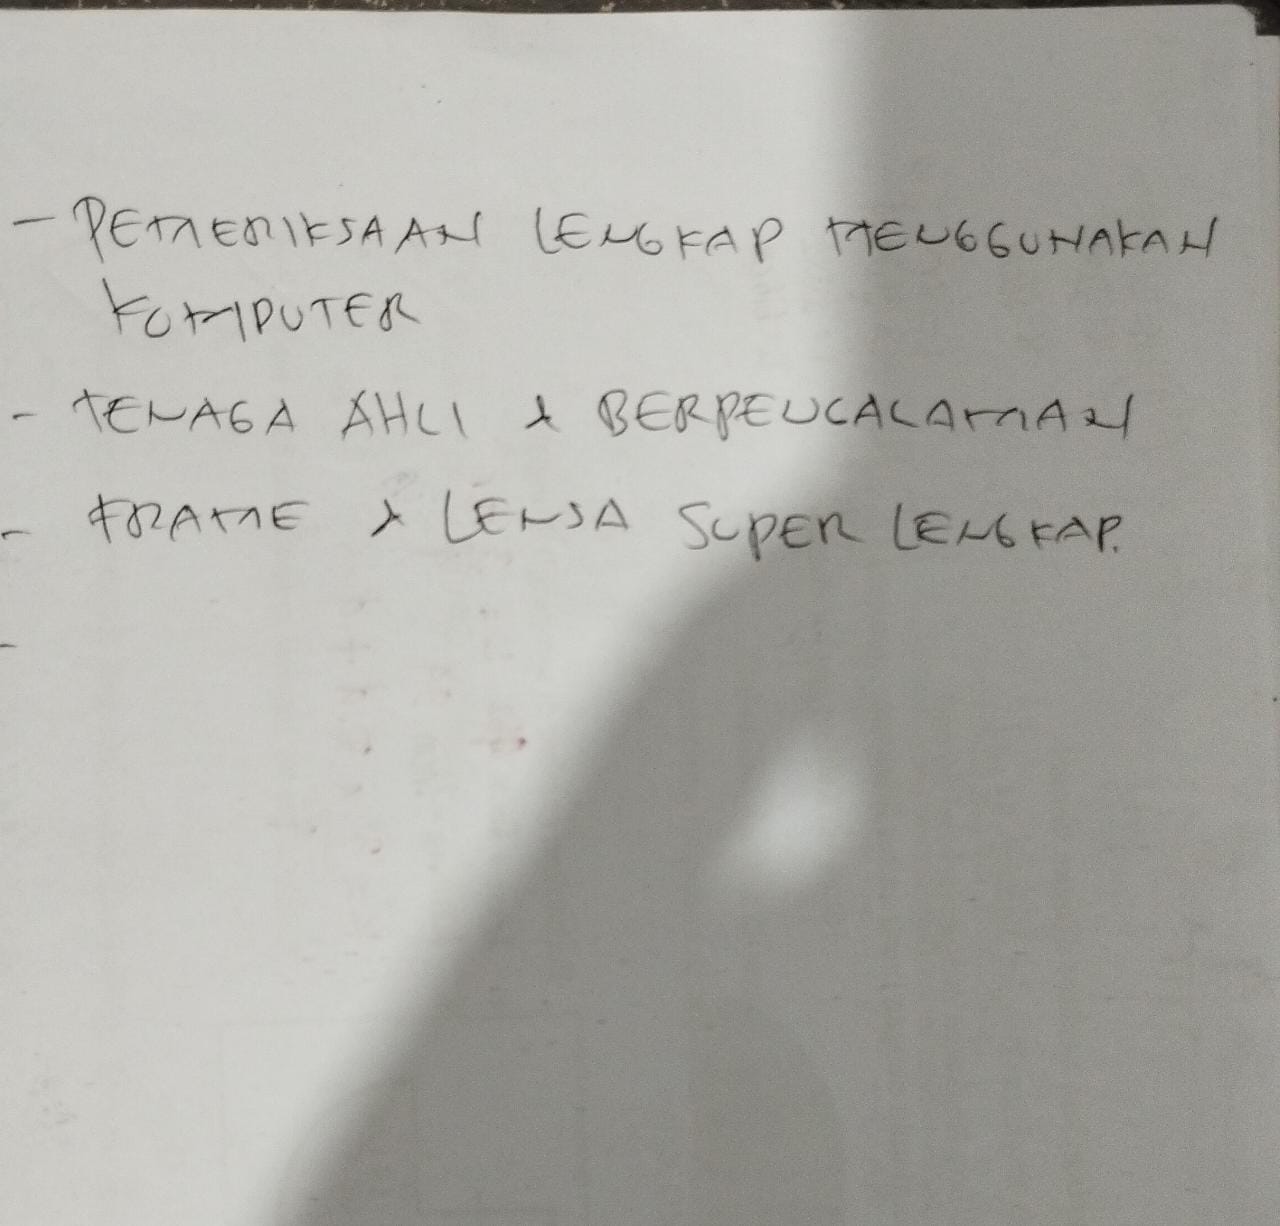 - PEMERIKSAAN LENGKAP MENGGUNAKAN
KOMPUTER
- TENAGA AHLI & BERPENGALAMAN
- FRAME & LENSA SUPER LENGKAP.
-